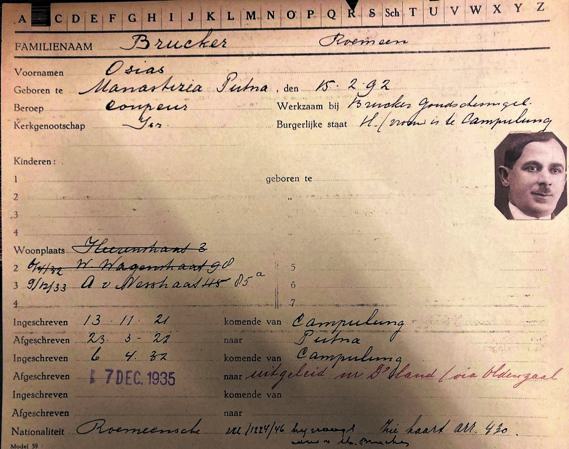 A B C D E F G H I J K L M N O P Q R S Sch T U V W X Y Z
FAMILIENAAM Brucker Roemeen
Voornamen Osias
Geboren te Manasterzia Putna, den 15. 2. 92
Beroep coupeur Werkzaam bij Brucker
Kerkgenootschap Isr. Burgerlijke staat H. (vrouw is te Campulung
Kinderen:
1 geboren te
2 "
3
4 "
Woonplaats Heerenstraat 2
2 W. Wagenstraat 90 5
3 9/12/33 A v Nesstraat 45 85a 6
4 7
Ingeschreven 13 11 21 komende van Campulung
Afgeschreven 23 5 22 naar Putna
Ingeschreven 6 4 32 komende van Campulung
Afgeschreven 17 DEC. 1935 naar uitgeleid n. D'sland (via Oldenzaal
Ingeschreven komende van
Afgeschreven naar
Nationaliteit Roemeensche Zie kaart art. 430.
Model 59